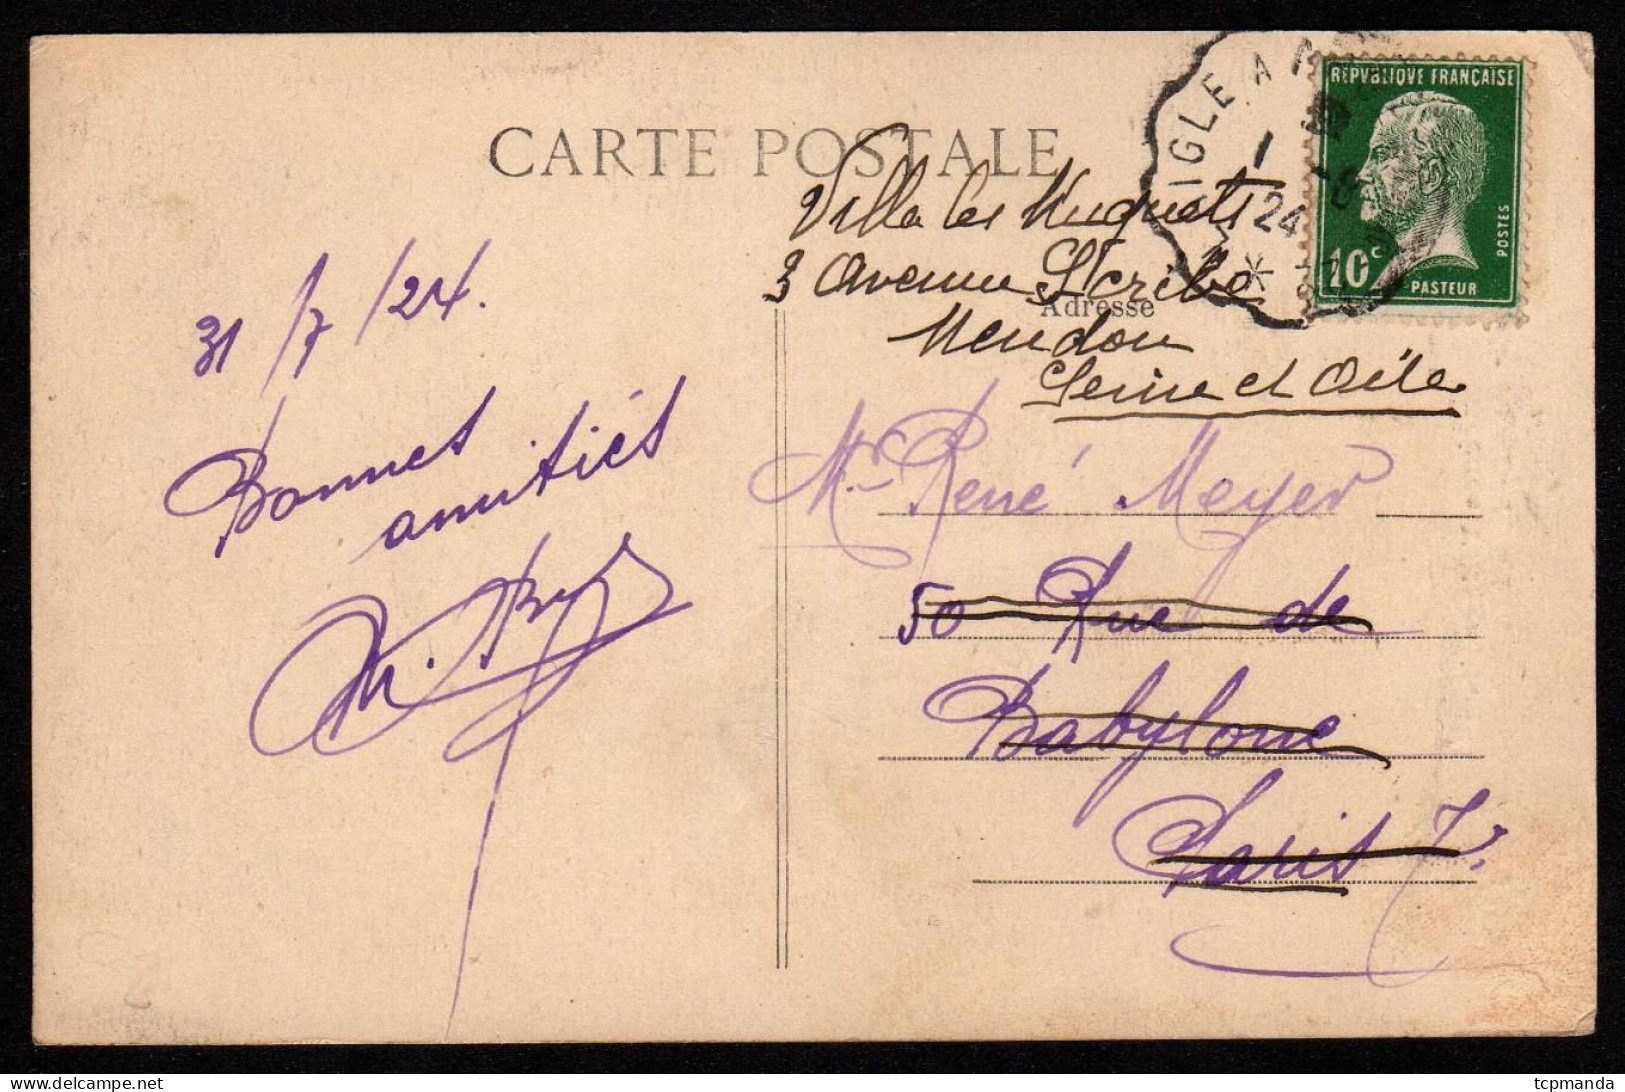 CARTE POSTALE
IGLE A
1
24
RÉPVBLIQVE FRANÇAISE
10c
POSTES
PASTEUR
Villa les Muguets
3 avenue Scribe
Adresse
Meudon
Seine et Oise
31/7/24.
Bonnes
amitiés
Mr René Meyer
50 Rue de
Babylone
Paris 7e
delcampe.net
tcpmanda